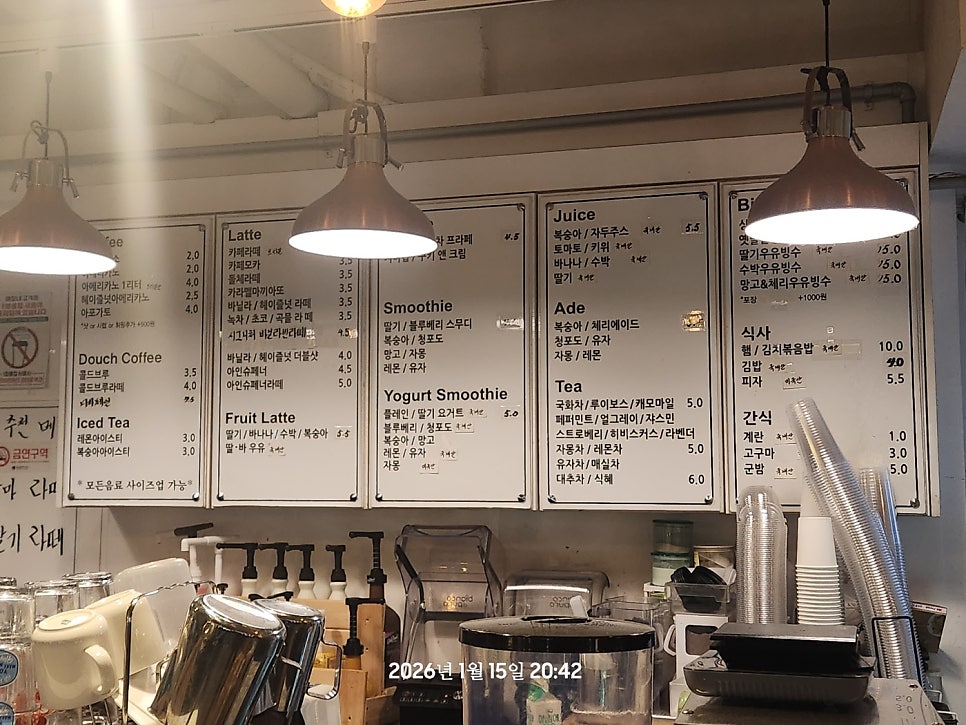 Latte
카페라떼
카페모카 3.5
돌체라떼 3.5
카라멜마끼아또 3.5
바닐라 / 헤이즐넛 라떼 3.5
녹차 / 초코 / 곡물 라떼 3.5
시그니처 바닐라빈라떼 4.5
바닐라 / 헤이즐넛 더블샷 4.0
아인슈페너 4.5
아인슈페너라떼 5.0
Fruit Latte
딸기 / 바나나 / 수박 / 복숭아 5.5
딸·바 우유 국내산
2.0
아메리카노 2.0
아메리카노 1리터 4.0
헤이즐넛아메리카노 2.5
아포가토 4.0
Douch Coffee
콜드브루 3.5
콜드브루라떼 4.0
Iced Tea
레몬아이스티 3.0
복숭아아이스티 3.0
* 모든음료 사이즈업 가능*
프라페 4.5
쿠키 앤 크림
Smoothie
딸기 / 블루베리 스무디
복숭아 / 청포도
망고 / 자몽
레몬 / 유자
Yogurt Smoothie
플레인 / 딸기 요거트 국내산 5.0
블루베리 / 청포도 국내산
복숭아 / 망고
레몬 / 유자 국내산
자몽 국내산
Juice
복숭아 / 자두주스 국내산 5.5
토마토 / 키위 국내산
바나나 / 수박 국내산
딸기 국내산
Ade
복숭아 / 체리에이드
청포도 / 유자
자몽 / 레몬
Tea
국화차 / 루이보스 / 캐모마일 5.0
페퍼민트 / 얼그레이 / 쟈스민
스트로베리 / 히비스커스 / 라벤더
자몽차 / 레몬차 5.0
유자차 / 매실차
대추차 / 식혜 6.0
딸기우유빙수 국내산 15.0
수박우유빙수 국내산 15.0
망고&체리우유빙수 15.0
*포장 +1000원
식사
햄 / 김치볶음밥 국내산 10.0
김밥 국내산 4.0
피자 국내산 5.5
간식
계란 국내산 1.0
고구마 3.0
군밤 국내산 5.0
금연구역
추천 메
라떼
2026년 1월 15일 20:42